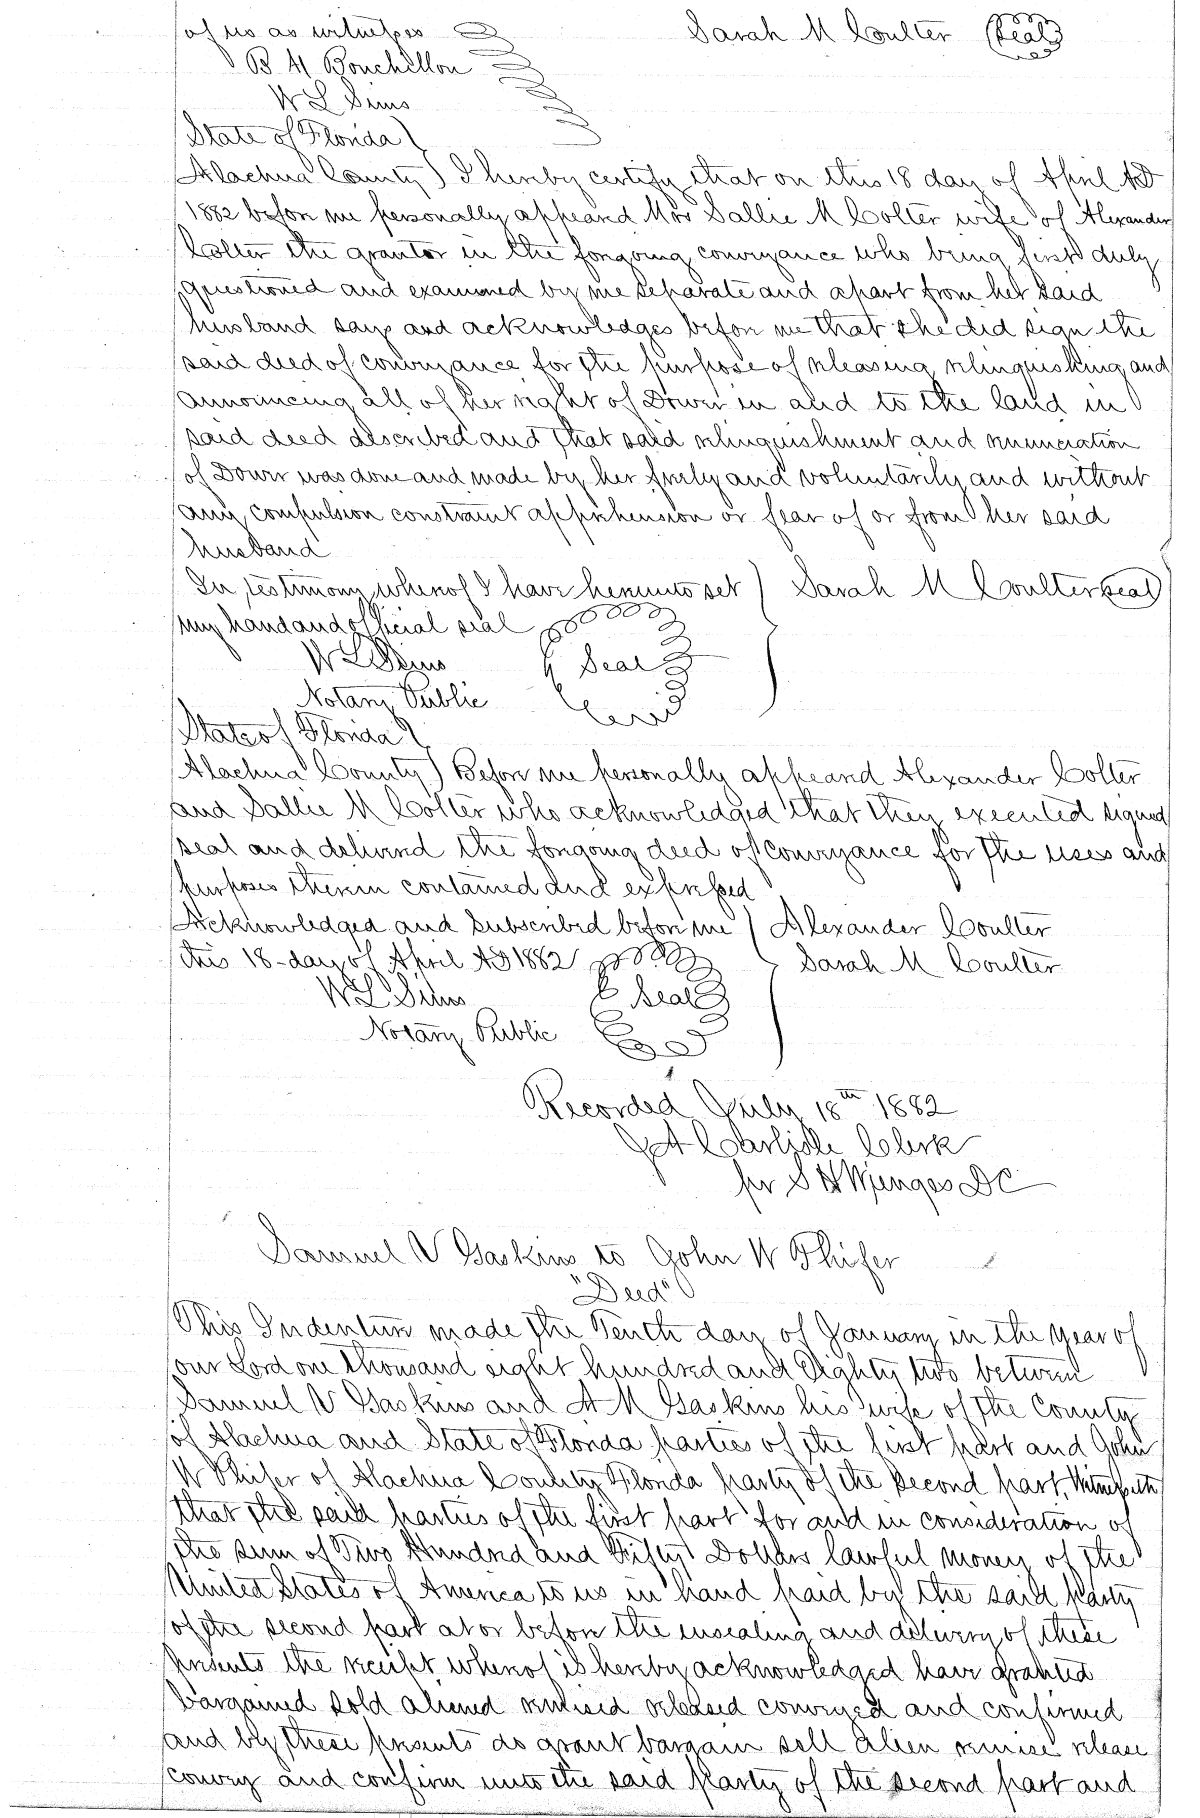 of us as witnesses Sarah M Coulter (Seal)
B H Bouchillon
W L Sims
State of Florida
Alachua County ) I hereby certify that on this 18 day of April AD
1882 before me personally appeared Mrs Sallie M Colter wife of Alexander
Colter the grantor in the forgoing conveyance who being first duly
questioned and examined by me separate and apart from her said
husband says and acknowledges before me that she did sign the
said deed of conveyance for the purpose of releasing relinquishing and
announcing all of her right of Dower in and to the land in
said deed described and that said relinquishment and renunciation
of Dower was done and made by her freely and voluntarily and without
any compulsion constraint apprehension or fear of or from her said
husband
In testimony whereof I have hereunto set ) Sarah M Coulter (seal)
my hand and official seal
W L Sims Seal
Notary Public
State of Florida
Alachua County ) Before me personally appeared Alexander Colter
and Sallie M Colter who acknowledged that they executed signed
seal and delivered the forgoing deed of conveyance for the uses and
purposes therein contained and expressed
Acknowledged and subscribed before me ) Alexander Coulter
this 18 day of April AD 1882 Sarah M Coulter
W L Sims Seal
Notary Public
Recorded July 18th 1882
J A Carlisle Clerk
pr S H Wienges DC
Samuel V Gaskins to John W Phifer
"Deed"
This Indenture made the Tenth day of January in the year of
our Lord one thousand eight hundred and Eighty two between
Samuel V Gaskins and A M Gaskins his wife of the County
of Alachua and State of Florida parties of the first part and John
W Phifer of Alachua County Florida party of the second part, Witnesseth
that the said parties of the first part for and in consideration of
the sum of Two Hundred and Fifty Dollars lawful money of the
United States of America to us in hand paid by the said party
of the second part at or before the ensealing and delivery of these
presents the receipt whereof is hereby acknowledged have granted
bargained sold aliened remised released conveyed and confirmed
and by these presents do grant bargain sell alien remise release
convey and confirm unto the said party of the second part and